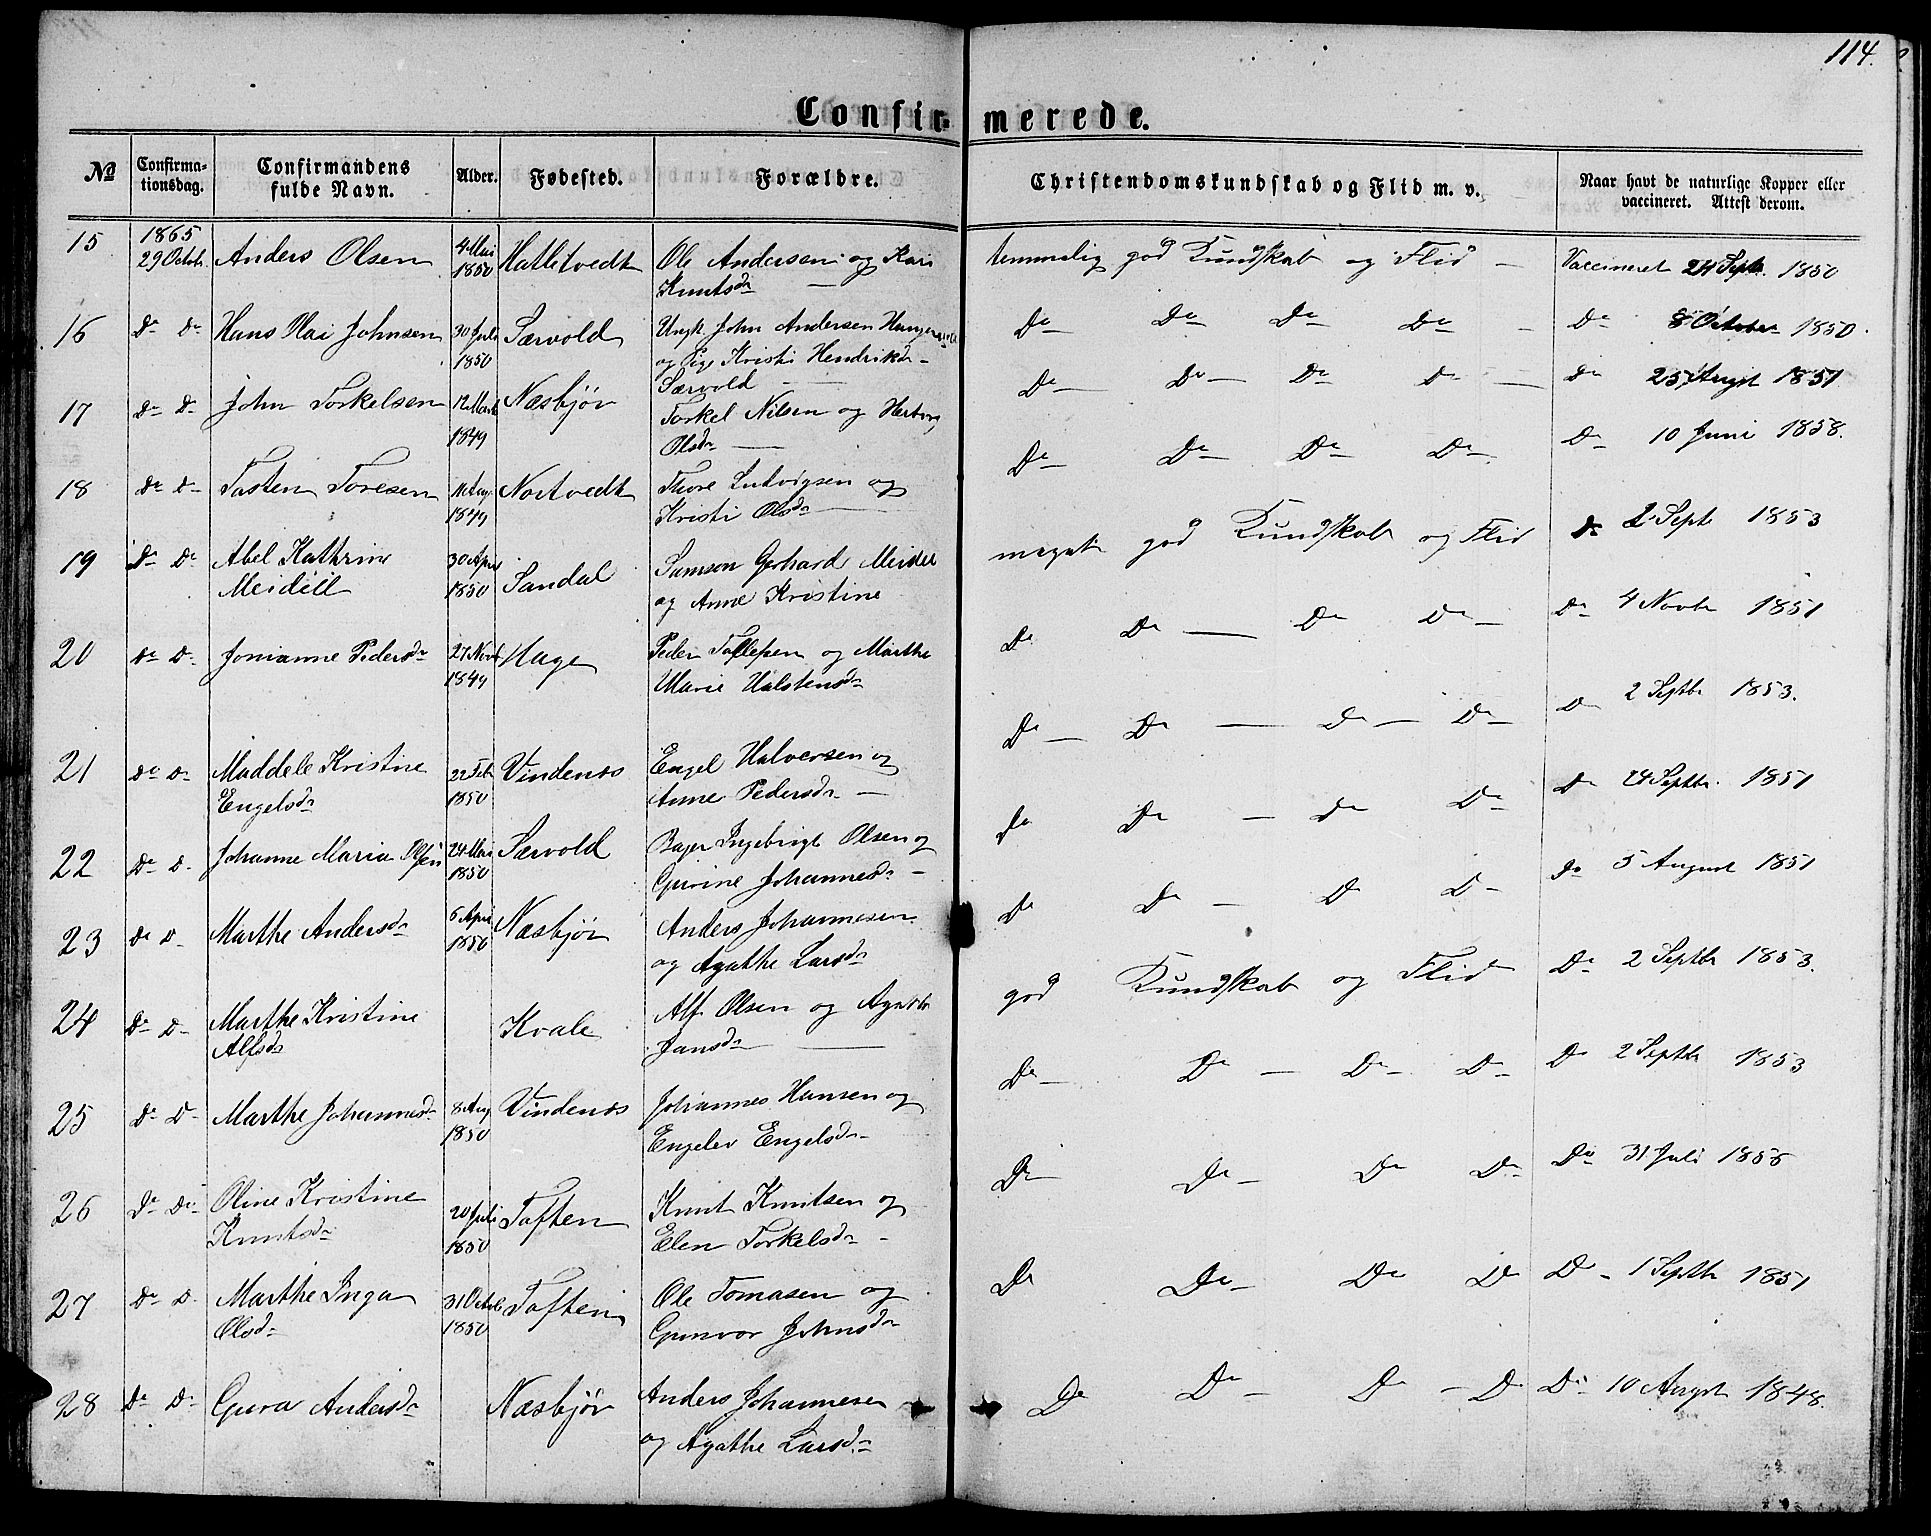 114.
Confirmerede.
№ Confirmationsdag. Confirmandens fulde Navn. Alder. Fødested. Forældre. Christendomskundskab og Flid m. v. Naar havt de naturlige Kopper eller vaccineret. Attest derom.
15 1865 29 Octob. Anders Olsen 4 Mai 1850 Hatletvedt Ole Andersen og Kari Knutsdr temmelig god Kundskab og Flid Vaccineret 24 Septr. 1850
16 Do Do Hans Olai Johnsen 30 Juli 1850 Særvold Ungk. John Andersen og Pige Kristi Hendriksdr Særvold Do Do Do Do Do 8 October 1850.
17 Do Do John Torkelsen 12 Marts 1849 Næsbjør Torkel Nilsen og Herborg Olsdr Do Do Do Do Do 25 Augst 1851
18 Do Do Tosten Toresen 11 Aug 1849 Nortvedt Thore Ludvigsen og Kristi Olsdr Do Do Do Do Do 10 Juni 1858.
19 Do Do Abel Kathrine Meidell 30 April 1850 Sandal Samson Gerhard Meidel og Anne Kristine meget god Kundskab og Flid Do 2 Sept 1853
20 Do Do Jonianne Pedersdr 27 Novb 1849 Hage Peder Tollefsen og Marthe Marie Halstensdr Do Do Do Do Do 4 Novbr 1851
21 Do Do Maddele Kristine Engelsdr 22 Feb 1850 Vindenes Engel Halversen og Anne Pedersdr Do Do Do Do Do 2 Septbr 1853.
22 Do Do Johanne Maria Olsen 24 Mai 1850 Særvold Bager Ingebrigt Olsen og Gurine Johannesdr Do Do Do Do Do 24 Septbr. 1851
23 Do Do Marthe Andersdr 6 April 1850 Næsbjør Anders Johannesen og Agathe Larsdr Do Do Do Do Do 5 August 1851
24 Do Do Marthe Kristine Alfsdr Kvale Alf Olsen og Agathe Jansdr god Kundskab og Flid Do 2 Septbr 1853.
25 Do Do Marthe Johannesdr 8 Aug 1850 Vindenes Johannes Hansen og Engelev Engelsdr Do Do Do Do Do 2 Septbr 1853
26 Do Do Oline Kristine Knutsdr 20 Juli 1850 Toften Knut Knutsen og Elen Torkelsdr Do Do Do Do Do 31 Juli 1855
27 Do Do Marthe Inga Olsdr 31 Octob 1850 Toften Ole Tomasen og Gunvor Johnsdr Do Do Do Do Do 1 Septbr 1851
28 Do Do Gura Andersdr Næsbjør Anders Johannesen og Agathe Larsdr Do Do Do Do Do 10 Augst 1848.